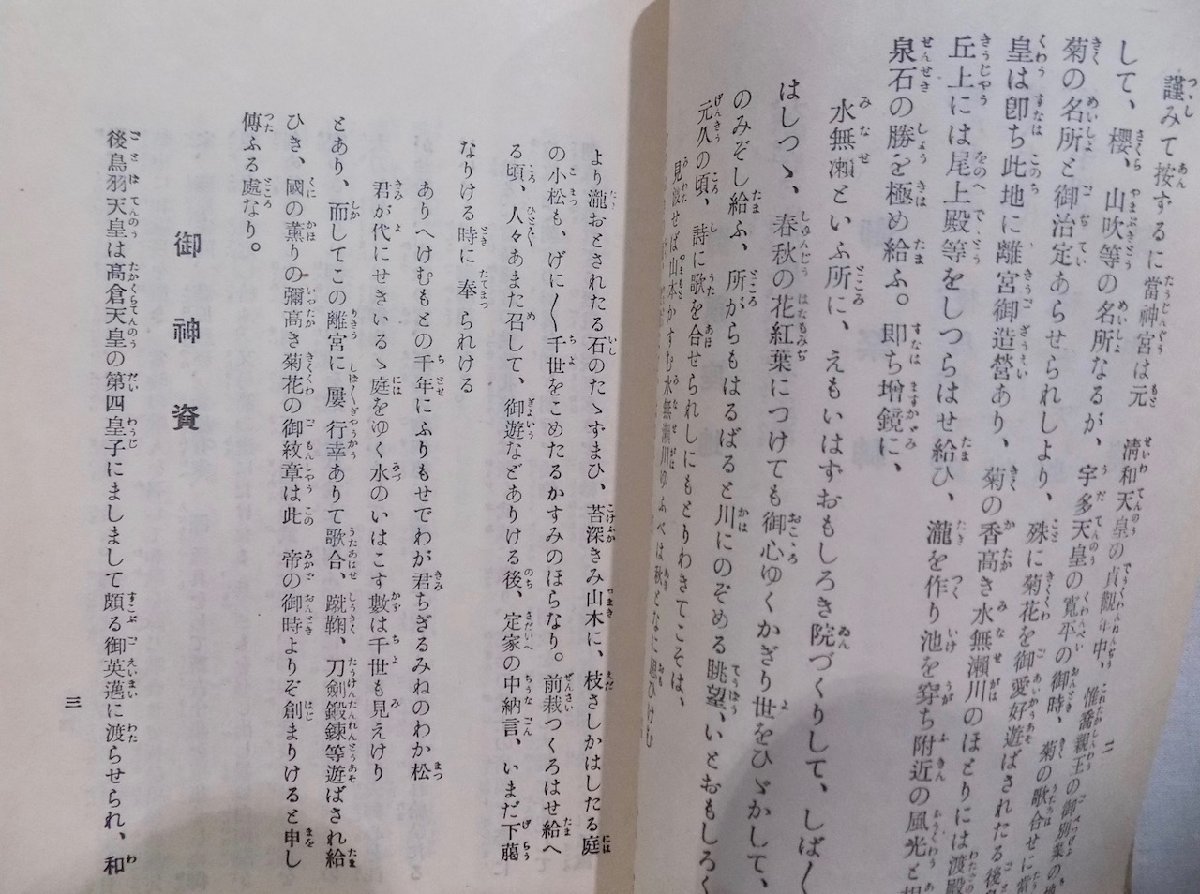 謹みて按するに當神宮は元 清和天皇の貞觀年中、惟喬親王の御別業の
して、櫻、山吹等の名所なるが、宇多天皇の寬平の御時、菊の歌合せに
菊の名所と御治定あらせられしより、殊に菊花を御愛好遊ばされたる後
皇は卽ち此地に離宮御造營あり、菊の香高き水無瀨川のほとりには渡殿
丘上には尾上殿等をしつらはせ給ひ、瀧を作り池を穿ち附近の風光と
泉石の勝を極め給ふ。卽ち增鏡に、
水無瀨といふ所に、えもいはずおもしろき院づくりして、しば〳〵
はしつゝ、春秋の花紅葉につけても御心ゆくかぎり世をひゞかして、
のみぞし給ふ、所がらもはるばると川にのぞめる眺望、いとおもしろく
元久の頃、詩に歌を合せられしにもとりわきてこそは、
見渡せば山本かすむ水無瀨川ゆふべは秋となに思ひけむ
二
より瀧おとされたる石のたゝずまひ、苔深きみ山木に、枝さしかはしたる庭
の小松も、げに〳〵千世をこめたるかすみのほらなり。前栽つくろはせ給へ
る頃、人々あまた召して、御遊などありける後、定家の中納言、いまだ下﨟
なりける時に奉られける
ありへけむもとの千年にふりもせでわが君ちぎるみねのわか松
君が代にせきいるゝ庭をゆく水のいはこす數は千世も見えけり
とあり、而してこの離宮に屢行幸ありて歌合、蹴鞠、刀劍鍛鍊等遊ばされ給
ひき、國の薰りの彌高き菊花の御紋章は此 帝の御時よりぞ創まりけると申し
傳ふる處なり。
御神資
後鳥羽天皇は高倉天皇の第四皇子にましまして頗る御英邁に渡らせられ、和
三